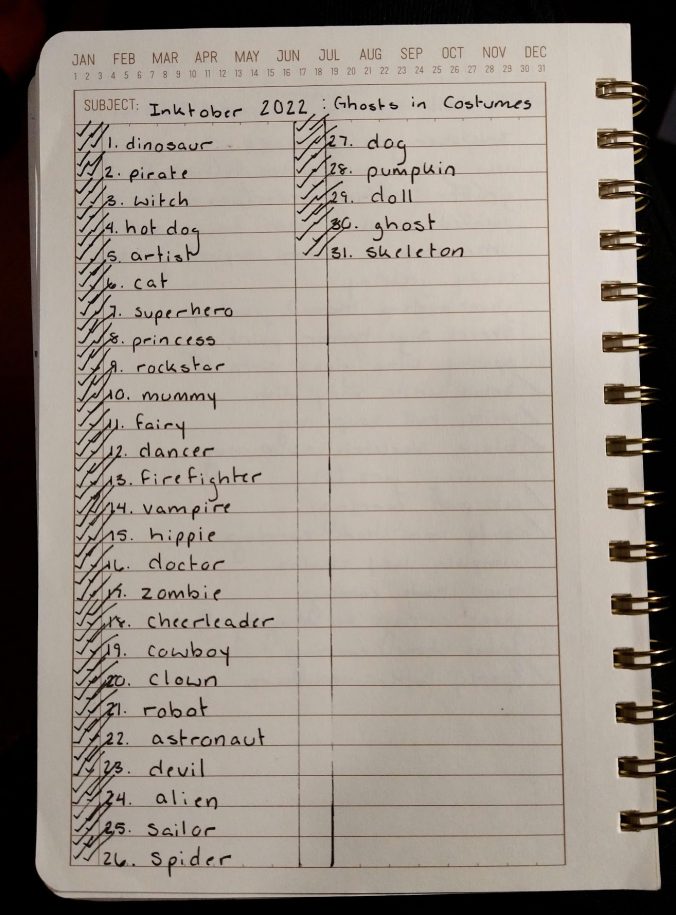 JAN FEB MAR APR MAY JUN JUL AUG SEP OCT NOV DEC
1 2 3 4 5 6 7 8 9 10 11 12 13 14 15 16 17 18 19 20 21 22 23 24 25 26 27 28 29 30 31
SUBJECT: Inktober 2022 : Ghosts in Costumes
1. dinosaur
2. pirate
3. witch
4. hot dog
5. artist
6. cat
7. superhero
8. princess
9. rockstar
10. mummy
11. fairy
12. dancer
13. firefighter
14. vampire
15. hippie
16. doctor
17. zombie
18. cheerleader
19. cowboy
20. clown
21. robot
22. astronaut
23. devil
24. alien
25. sailor
26. spider
27. dog
28. pumpkin
29. doll
30. ghost
31. skeleton